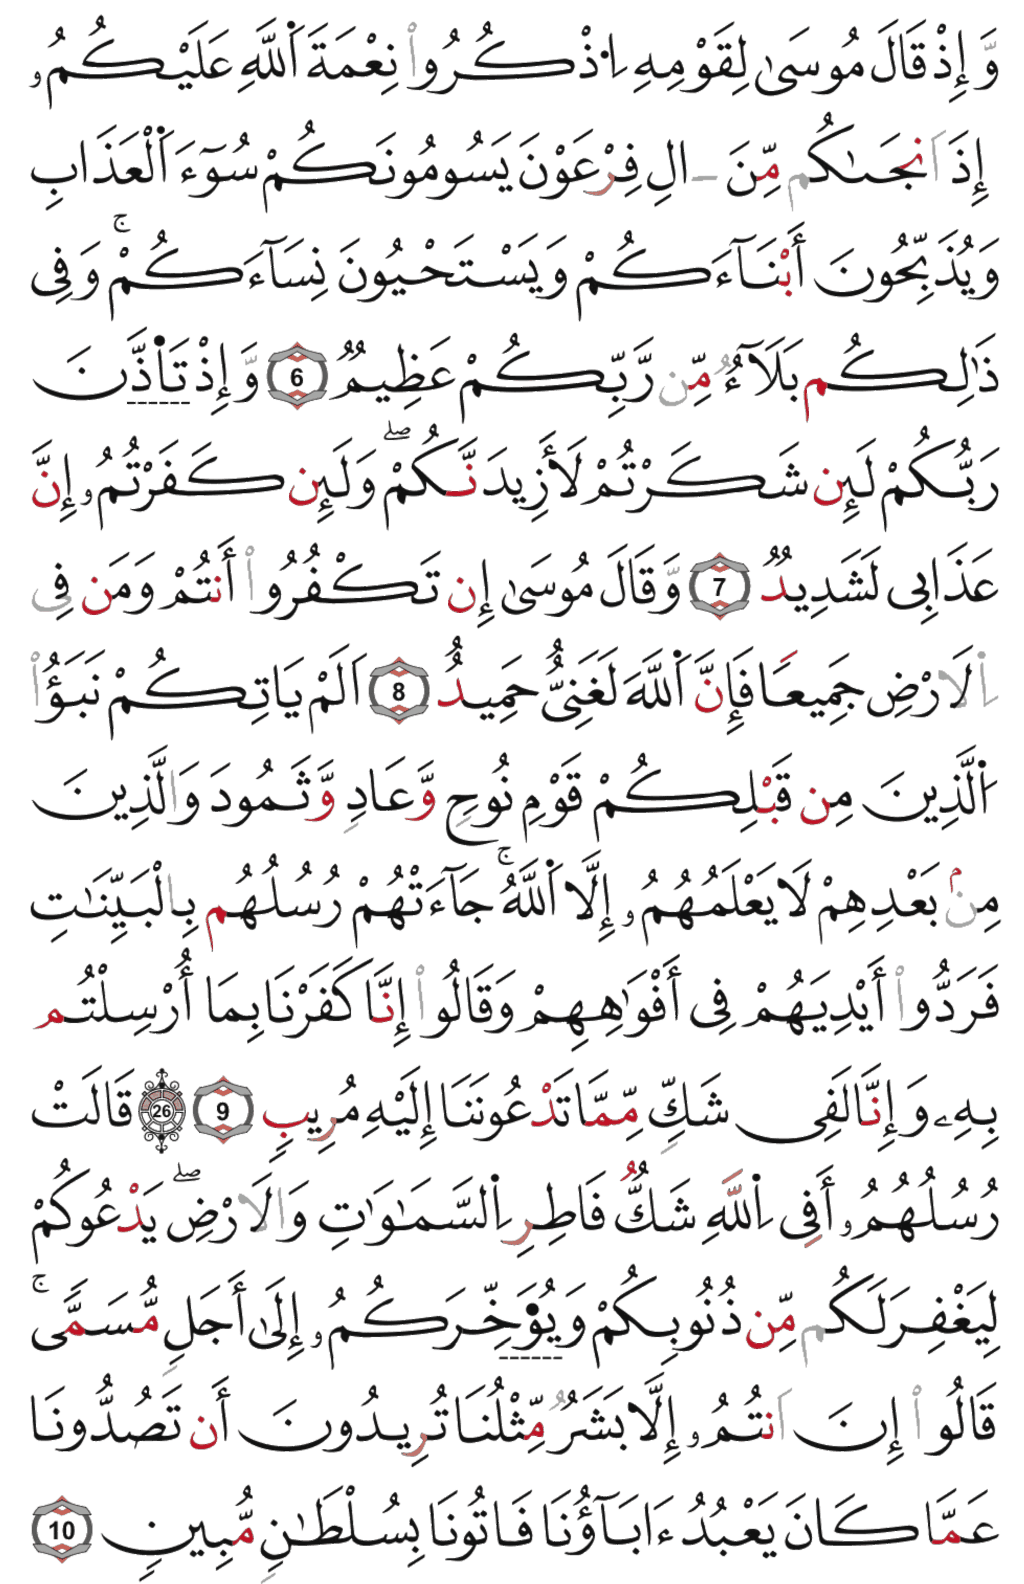 وَّإِذْ قَالَ مُوسَىٰ لِقَوْمِهِ اِ۬ذْكُرُواْ نِعْمَةَ اَ۬للَّهِ عَلَيْكُمُۥ
إِذَ اَنجَىٰكُم مِّنَ اٰلِ فِرْعَوْنَ يَسُومُونَكُمْ سُوٓءَ اَ۬لْعَذَابِ
وَيُذَبِّحُونَ أَبْنَآءَكُمْ وَيَسْتَحْيُونَ نِسَآءَكُمْۚ وَفِى
ذَٰلِكُم بَلَآءٌ مِّن رَّبِّكُمْ عَظِيمٌ 6 وَّإِذْ تَأَذَّنَ
رَبُّكُمْ لَئِن شَكَرْتُمْ لَأَزِيدَنَّكُمْۖ وَلَئِن كَفَرْتُمُۥ إِنَّ
عَذَابِى لَشَدِيدٌ 7 وَّقَالَ مُوسَىٰ إِن تَكْفُرُواْ أَنتُمْ وَمَن فِى
اِ۬لَارْضِ جَمِيعًا فَإِنَّ اَ۬للَّهَ لَغَنِىٌّ حَمِيدٌ 8 اَلَمْ يَاتِكُمْ نَبَؤُاْ
اُ۬لَّذِينَ مِن قَبْلِكُمْ قَوْمِ نُوحٍ وَّعَادٍ وَّثَمُودَ وَالَّذِينَ
مِنۢ بَعْدِهِمْ لَا يَعْلَمُهُمُۥ إِلَّا اَ۬للَّهُۚ جَآءَتْهُمْ رُسُلُهُم بِالْبَيِّنَٰتِ
فَرَدُّواْ أَيْدِيَهُمْ فِى أَفْوَٰهِهِمْ وَقَالُواْ إِنَّا كَفَرْنَا بِمَا أُرْسِلْتُم
بِهِۦ وَإِنَّا لَفِى شَكٍّ مِّمَّا تَدْعُونَنَا إِلَيْهِ مُرِيبٍ 9 26 قَالَتْ
رُسُلُهُمُۥ أَفِى اِ۬للَّهِ شَكٌّ فَاطِرِ اِ۬لسَّمَٰوَٰتِ وَالَارْضِۖ يَدْعُوكُمْ
لِيَغْفِرَ لَكُم مِّن ذُنُوبِكُمْ وَيُؤَخِّرَكُمُۥ إِلَىٰ أَجَلٍ مُّسَمًّىۚ
قَالُواْ إِنَ اَنتُمُۥ إِلَّا بَشَرٌ مِّثْلُنَا تُرِيدُونَ أَن تَصُدُّونَا
عَمَّا كَانَ يَعْبُدُ ءَابَآؤُنَا فَاتُونَا بِسُلْطَٰنٍ مُّبِينٍ 10